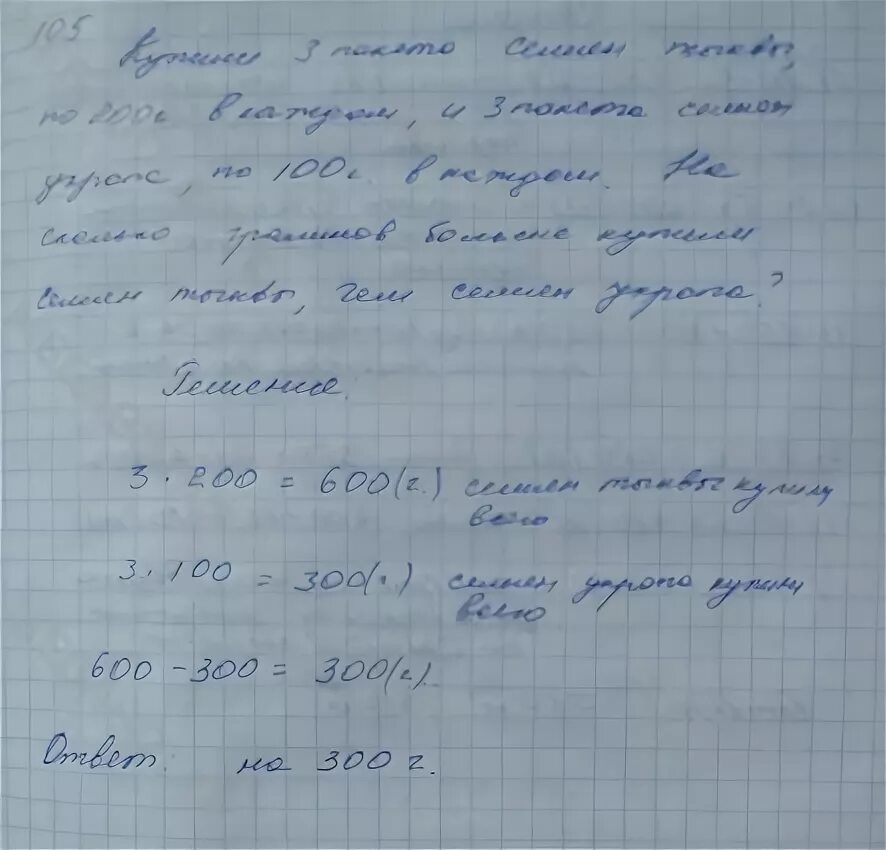 105
Купили 3 пакета семян тыквы,
по 200г. в каждом, и 3 пакета семян
укропа, по 100г. в каждом. На
сколько граммов больше купили
семян тыквы, чем семян укропа?
Решение.
3 · 200 = 600 (г.) семян тыквы купили
всего
3 · 100 = 300 (г.) семян укропа купили
всего
600 - 300 = 300 (г.)
Ответ: на 300 г.